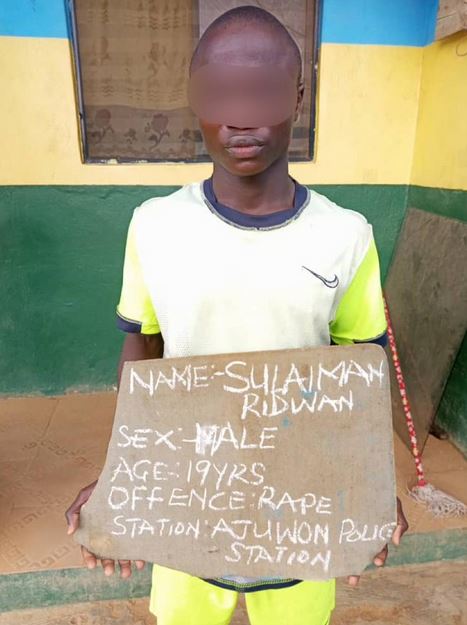 NAME:-SULAIMAN
RIDWAN
SEX:-MALE
AGE:19YRS
OFFENCE:RAPE
STATION:AJUWON POLICE
STATION